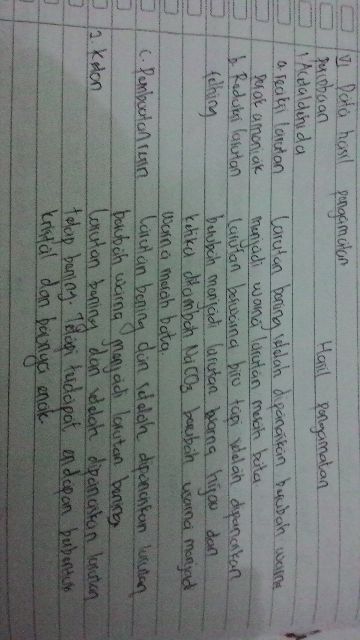 VI Data hasil pengamatan
percobaan Hasil pengamatan
1. Acetaldehida
a. reaksi larutan larutan bening setelah dipanaskan berubah warna
perak amoniak menjadi warna larutan merah bata
b. Reduksi larutan larutan berwarna biru tapi setelah dipanaskan
fehling berubah menjadi larutan warna hijau dan
ketika ditambah Na CO3 berubah warna menjadi
warna merah bata
c. Pembuatan resin larutan bening dan setelah dipanaskan larutan
berubah warna menjadi larutan bening
2. Keton larutan bening dan setelah dipanaskan larutan
tetap bening tetapi terdapat endapan berbentuk
kristal dan baunya enak